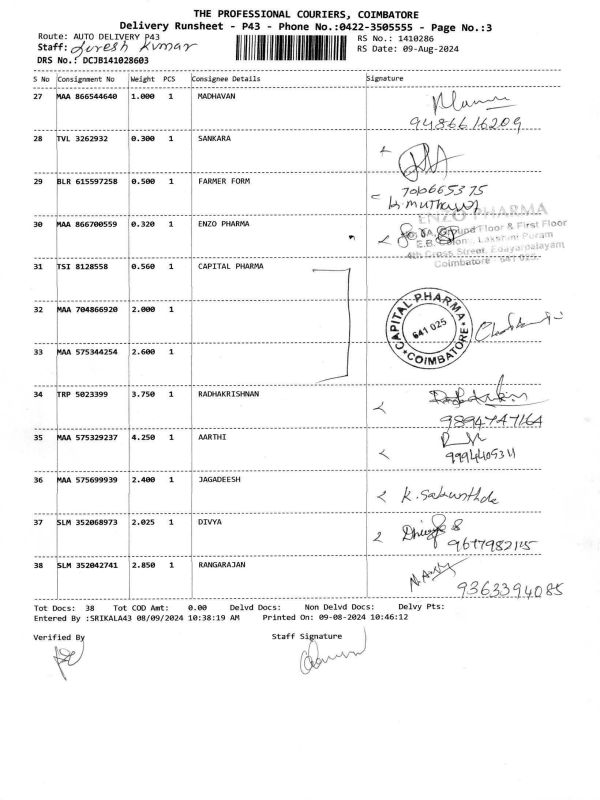 THE PROFESSIONAL COURIERS, COIMBATORE
Delivery Runsheet - P43 - Phone No.:0422-3505555 - Page No.:3
Route: AUTO DELIVERY P43
RS No.: 1410286
Staff: Suresh Kumar
RS Date: 09-Aug-2024
DRS No.: DCJB141028603
S No Consignment No Weight PCS Consignee Details Signature
27 MAA 866544640 1.000 1 MADHAVAN
9486616209
28 TVL 3262932 0.300 1 SANKARA
29 BLR 615597258 0.500 1 FARMER FORM 7010665375
K. Muthu
30 MAA 866700559 0.320 1 ENZO PHARMA
ENZO PHARMA
Ground Floor & First Floor
E.B. Colony, Lakshmi Puram
4th Cross Street, Edayarpalayam
Coimbatore - 641 025.
31 TSI 8128558 0.560 1 CAPITAL PHARMA
32 MAA 704866920 2.000 1
CAPITAL PHARMA
641 025
COIMBATORE
33 MAA 575344254 2.600 1
34 TRP 5023399 3.750 1 RADHAKRISHNAN
9894747164
35 MAA 575329237 4.250 1 AARTHI
9994405311
36 MAA 575699939 2.400 1 JAGADEESH
37 SLM 352068973 2.025 1 DIVYA
38 SLM 352042741 2.850 1 RANGARAJAN
9363394085
Tot Docs: 38 Tot COD Amt: 0.00 Delvd Docs: Non Delvd Docs: Delvy Pts:
Entered By :SRIKALA43 08/09/2024 10:38:19 AM Printed On: 09-08-2024 10:46:12
Verified By Staff Signature